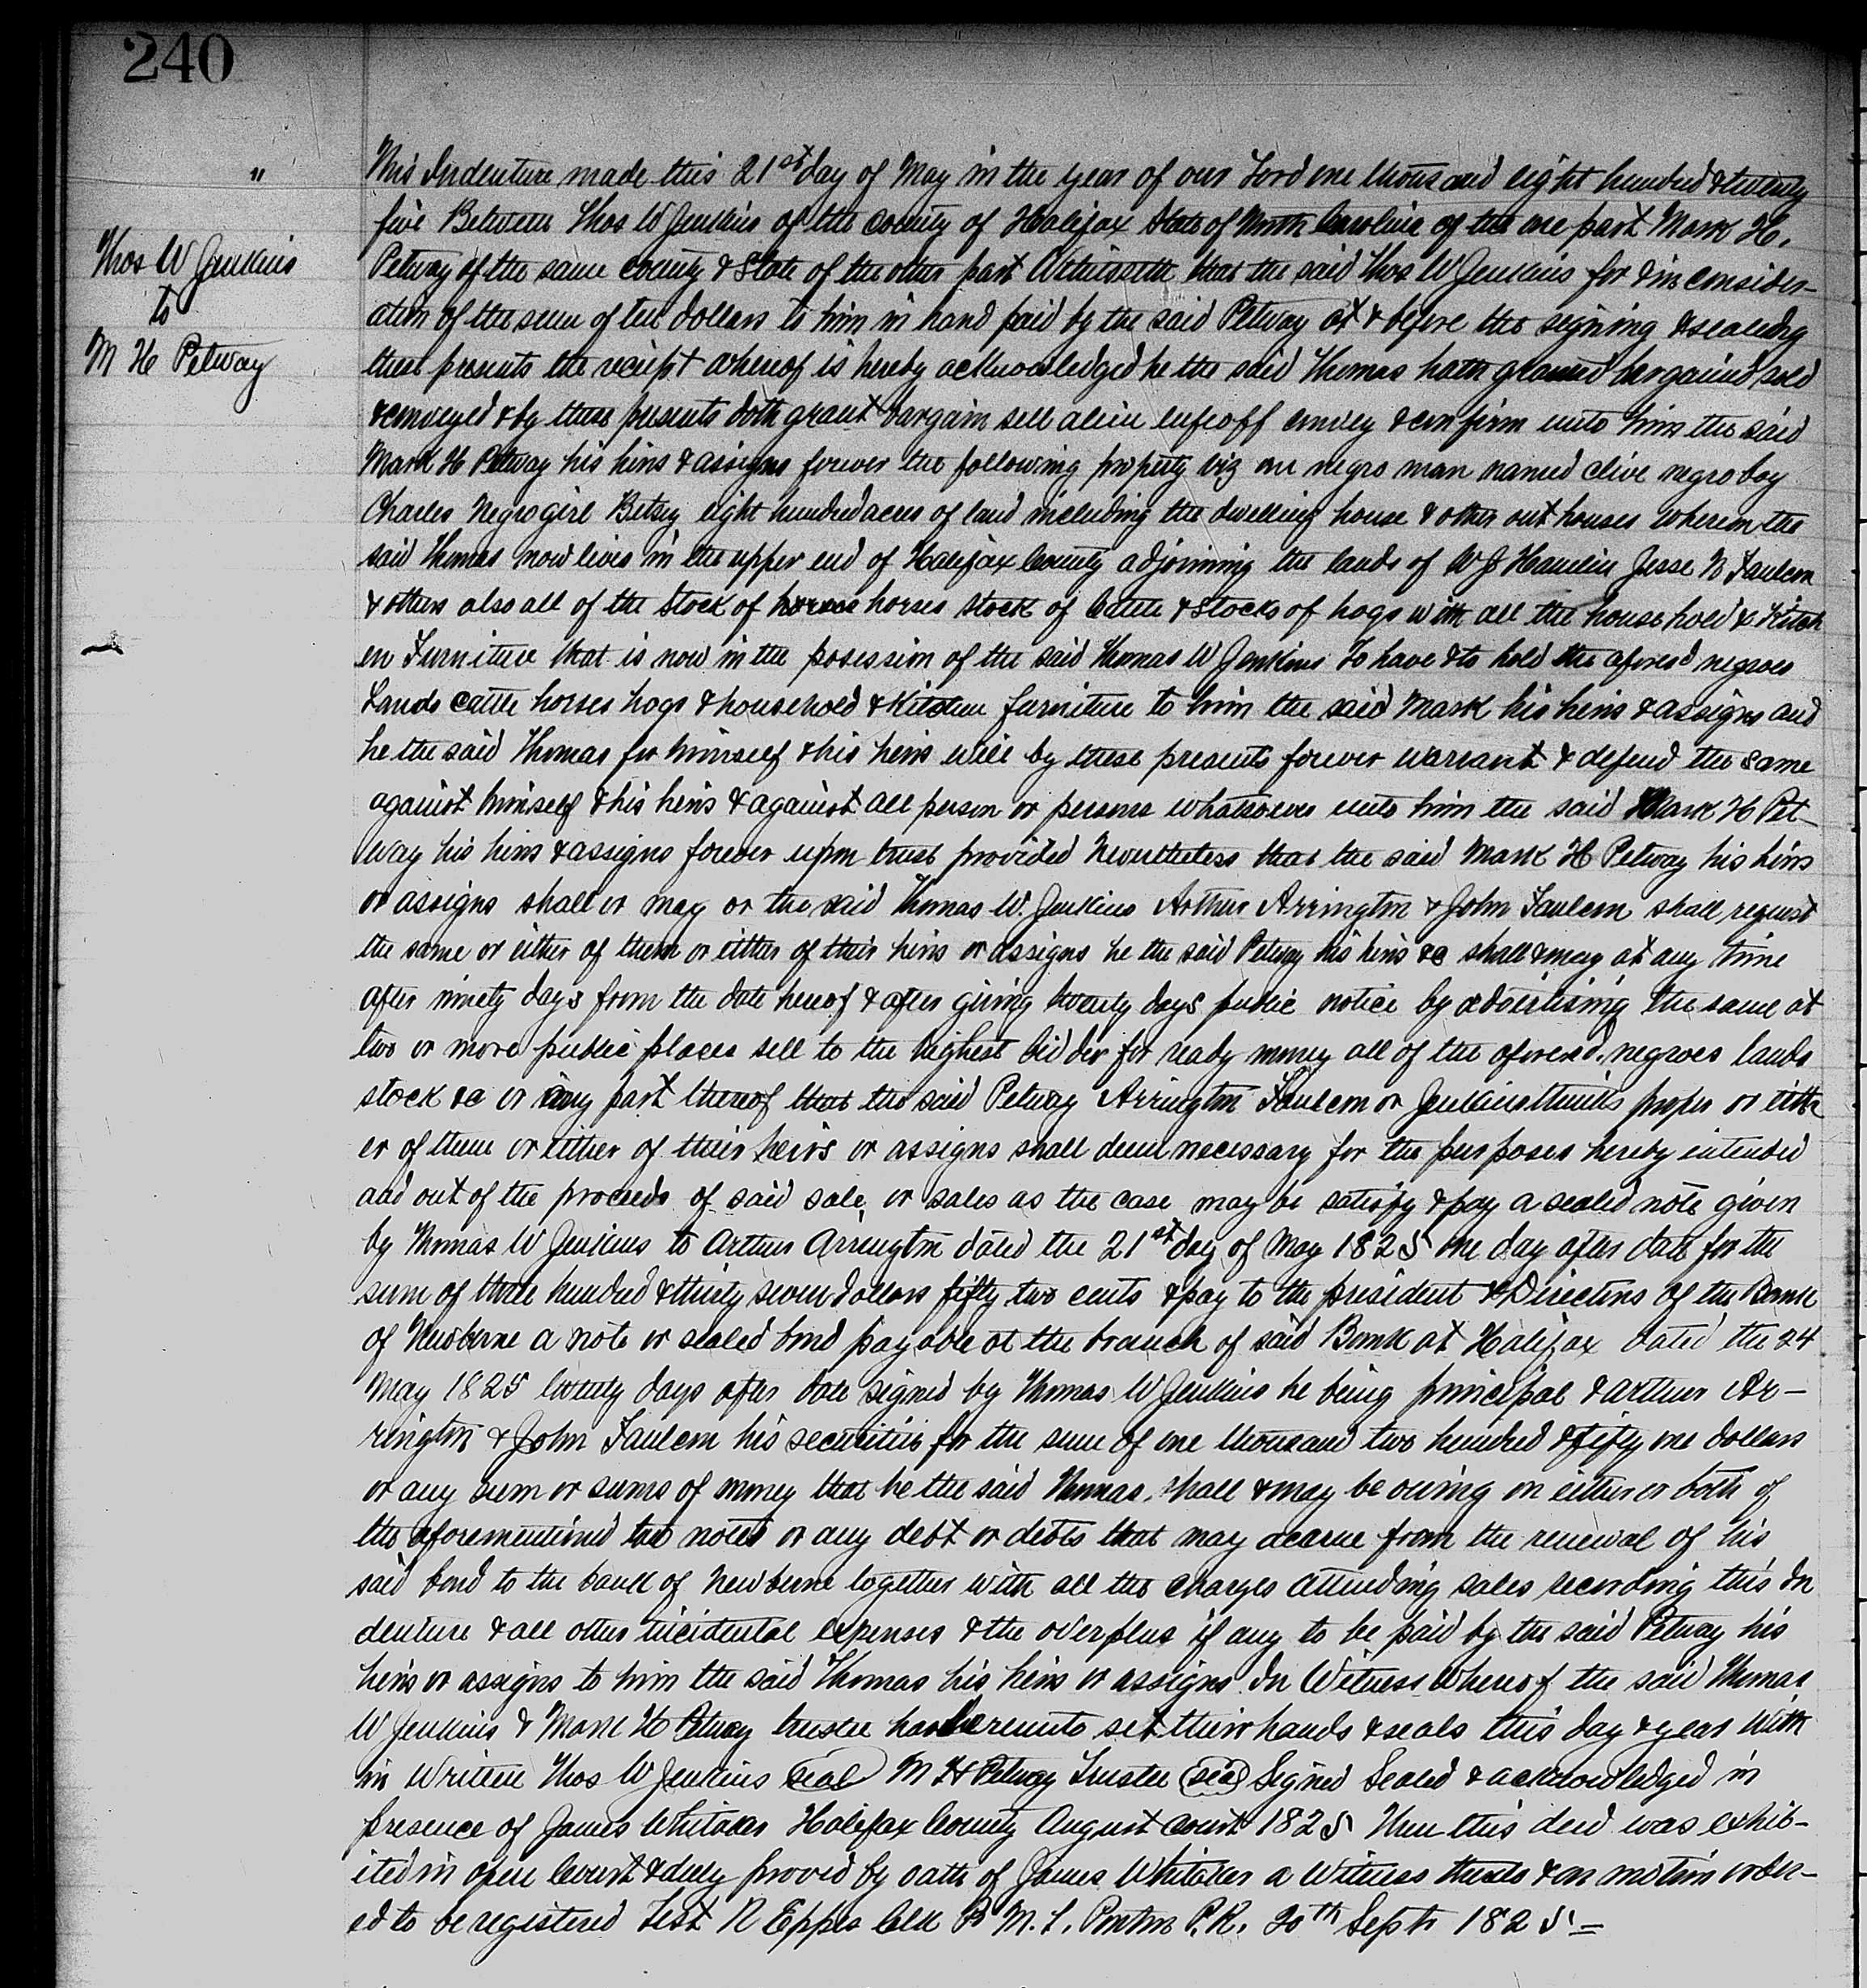 240
"
Thos W Jenkins
to
M H Petway
This Indenture made this 21st day of May in the year of our Lord one thousand eight hundred & twenty
five Between Thos W Jenkins of the county of Halifax State of North Carolina of the one part Mark H.
Petway of the same county & State of the other part Witnesseth that the said Thos W Jenkins for & in consider-
ation of the sum of ten dollars to him in hand paid by the said Petway at & before the signing & sealing
these presents the receipt whereof is hereby acknowledged he the said Thomas hath granted bargained sold
& conveyed & by these presents doth grant bargain sell alien enfeoff convey & confirm unto him the said
Mark H Petway his heirs & assigns forever the following property viz one negro man named Clive negro boy
Charles Negro girl Betsey eight hundred acres of land including the dwelling house & other out houses wherein the
said Thomas now lives in the upper end of Halifax County adjoining the lands of W J Hamlin Jesse N Faulcon
& others also all of the Stock of horses Stock of Cattle & Stocks of hogs with all the house hold & Kitch
en Furniture that is now in the posession of the said Thomas W Jenkins To have & to hold the aforesd negroes
Lands cattle horses hogs & household & Kitchen furniture to him the said Mark his heirs & assigns and
he the said Thomas for himself & his heirs will by these presents forever warrant & defend the same
against himself & his heirs & against all person or persons whatsoever unto him the said Mark H Pet-
way his heirs & assigns forever upon trust provided Nevertheless that the said Mark H Petway his heirs
or assigns shall or may or the said Thomas W. Jenkins Arthur Arrington & John Faulcon shall request
the same or either of them or either of their heirs or assigns he the said Petway his heirs &c shall & may at any time
after ninety days from the date hereof & after giving twenty days public notice by advertising the same at
two or more public places sell to the highest bidder for ready money all of the aforesd. negroes lands
stock &c or any part thereof that the said Petway Arrington Faulcon or Jenkins thinks proper or eith
er of them or either of their heirs or assigns shall deem necessary for the purposes hereby intended
and out of the proceeds of said sale or sales as the case may be satisfy & pay a sealed note given
by Thomas W Jenkins to Arthur Arrington dated the 21st day of May 1825 one day after date for the
sum of three hundred & thirty seven dollars fifty two cents & pay to the president & Directors of the Bank
of Newberne a note or sealed bond payable at the branch of said Bank at Halifax dated the 24
May 1825 twenty days after date signed by Thomas W Jenkins he being principal & Arthur Ar-
rington & John Faulcon his securities for the sum of one thousand two hundred & fifty one dollars
or any sum or sums of money that he the said Thomas shall & may be owing on either or both of
the aforementioned two notes or any debt or debts that may accrue from the renewal of his
said bond to the bank of Newberne together with all the charges attending sales recording this In
denture & all other incidental expenses & the overplus if any to be paid by the said Petway his
heirs or assigns to him the said Thomas his heirs or assigns In Witness Whereof the said Thomas
W Jenkins & Mark H Petway trustee have hereunto set their hands & seals this day & year With
in Written Thos W Jenkins Seal M H Petway Trustee Seal Signed Sealed & acknowledged in
presence of James Whitaker Halifax County August court 1825 Then this deed was exhib-
ited in open Court & duly proved by oath of James Whitaker a Witness thereto & on motion order-
ed to be registered Test R Eppes Clk M. T. Ponton P.R. 20th Sept 1825